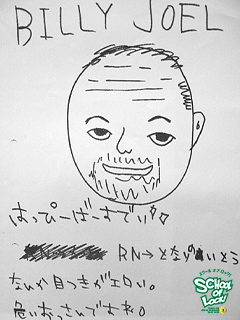 BILLY JOEL
はっぴーばーすでい
RN→となりのいとう
なんか目つきがエロい。
危いおっさんですね。
スクール オブ ロック!
SCHOOL
OF
LOCK!